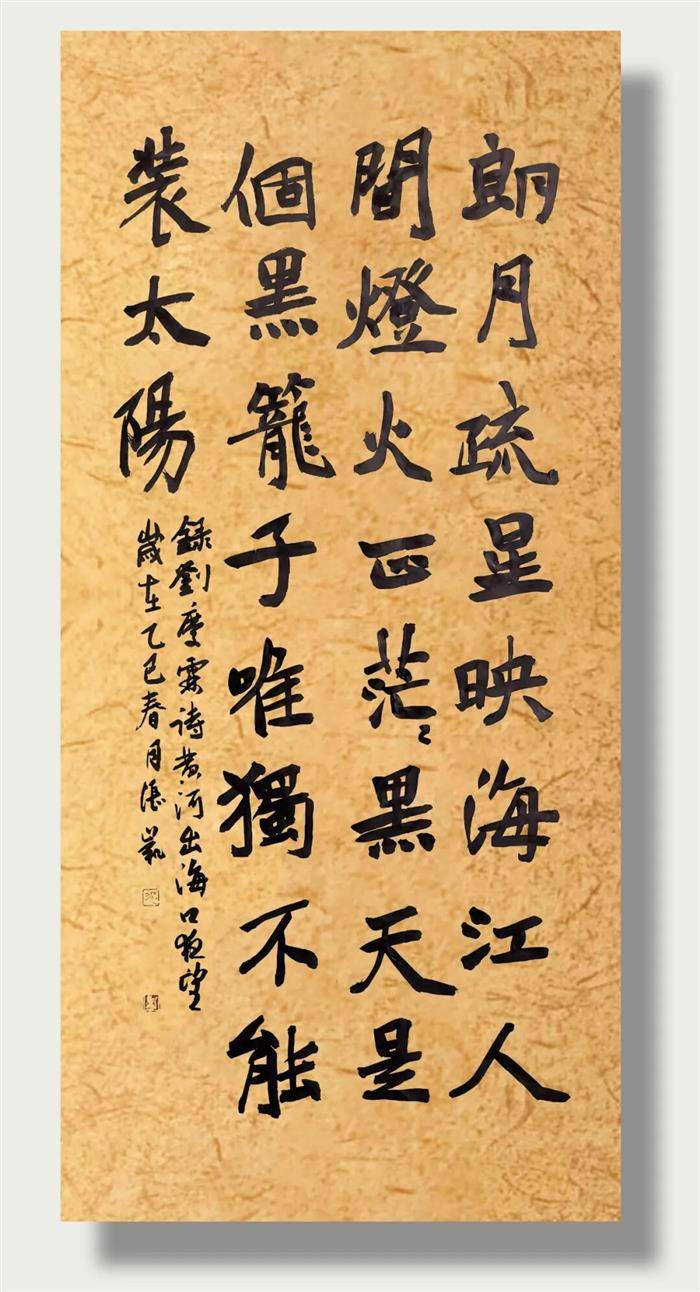 朗月疏星映海江人
間燈火正茫々黑天是
個黑籠子唯獨不能
裝太陽
錄劉慶霖诗黄河出海口夜望
歲在乙巳春月